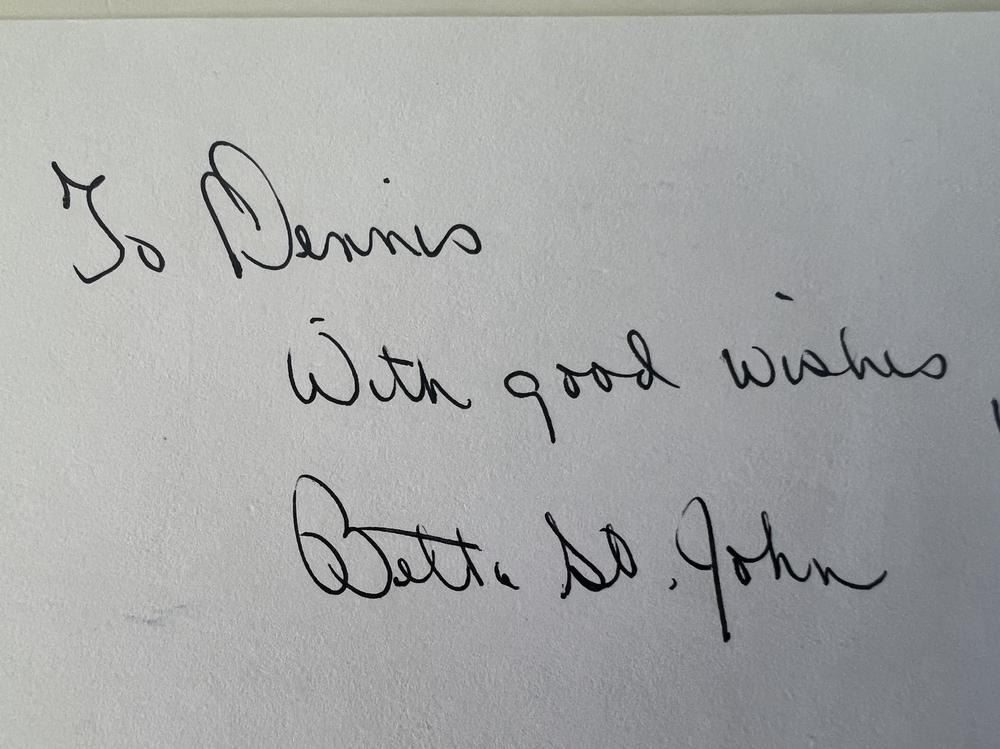 To Dennis
With good wishes,
Betta St. John